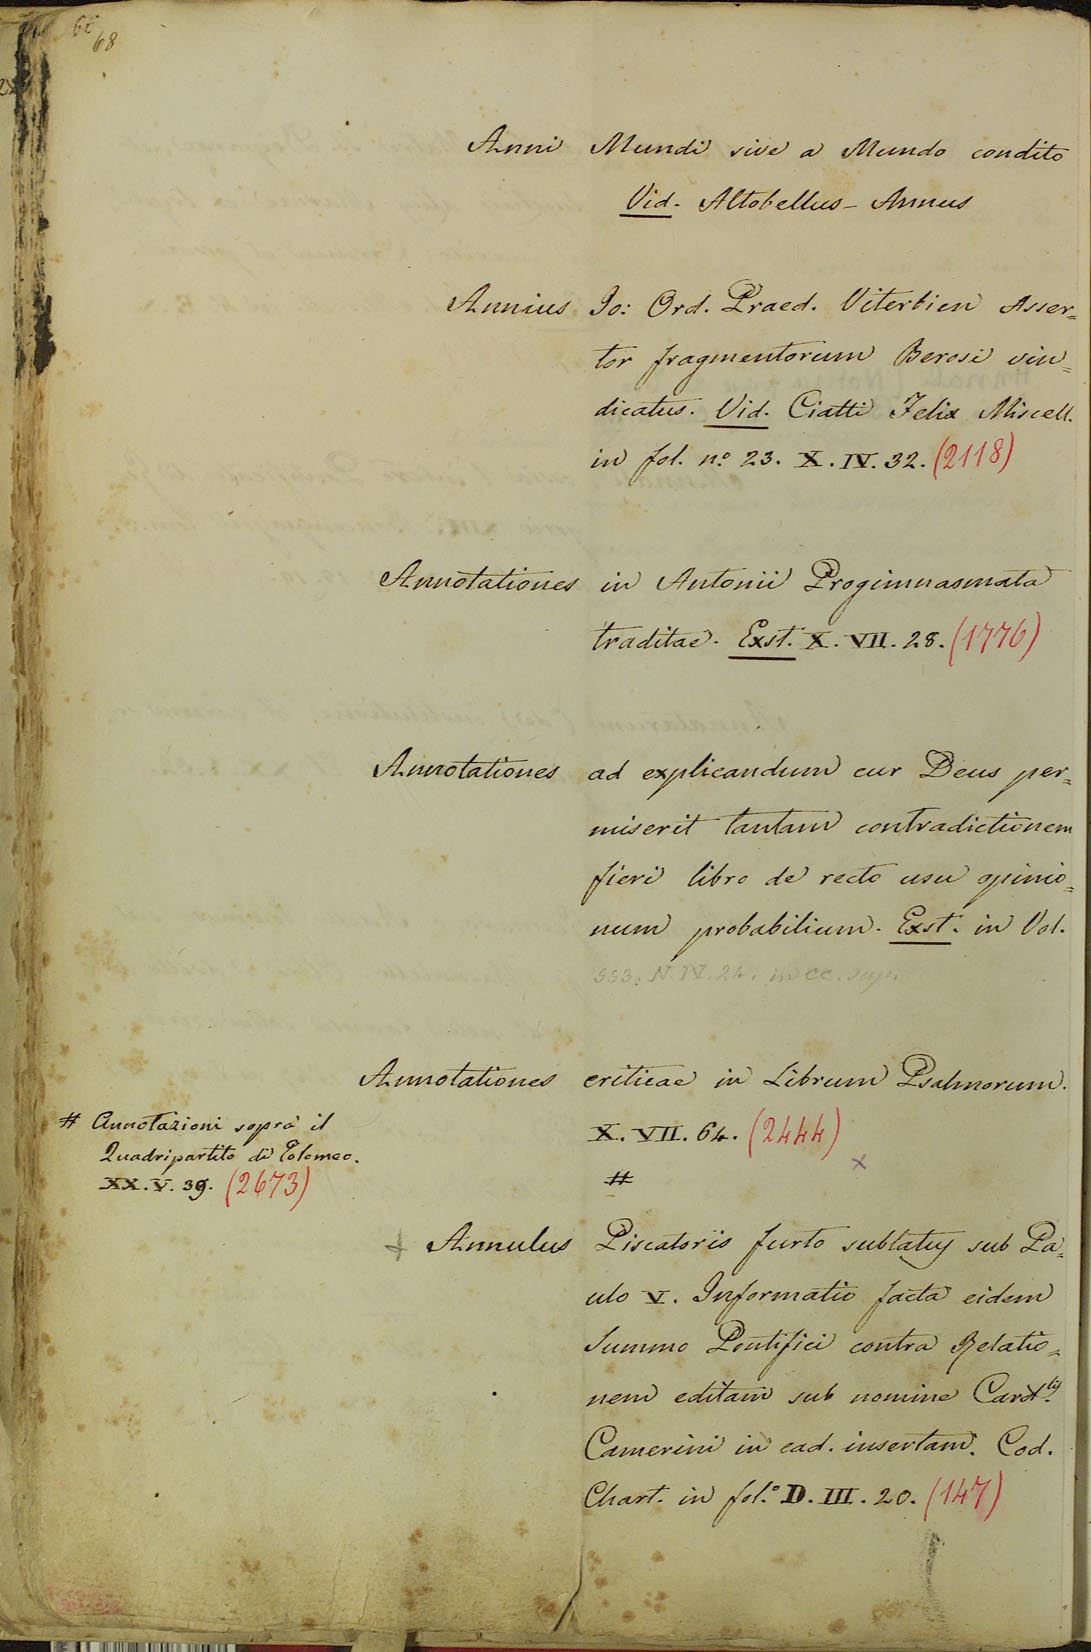 68
Anni Mundi sive a Mundo condito
Vid. Altobellus - Annus
Annius Jo: Ord. Praed. Viterbien Asser=
tor fragmentorum Berosi vin=
dicatus. Vid. Ciatti Felix Miscell.
in fol. n.º 23. X. IV. 32. (2118)
Annotationes in Antonii Progimnasmata
traditae. Exst. X. VII. 28. (1776)
Annotationes ad explicandum cur Deus per=
miserit tantam contradictionem
fieri libro de recto usu opinio=
num probabilium. Exst. in Vol.
553. N. IV. 24. in cc.
Annotationes criticae in Librum Psalmorum.
X. VII. 64. (2444)
x
#
# Annotazioni sopra il
Quadripartito di Tolomeo.
XX. V. 39. (2673)
+ Annulus Piscatoris furto sublatus sub Pa=
ulo V. Informatio facta eidem
Summo Pontifici contra Relatio=
nem editam sub nomine Card.lis
Camerini in ead. insertam. Cod.
Chart. in fol.º D. III. 20. (147)